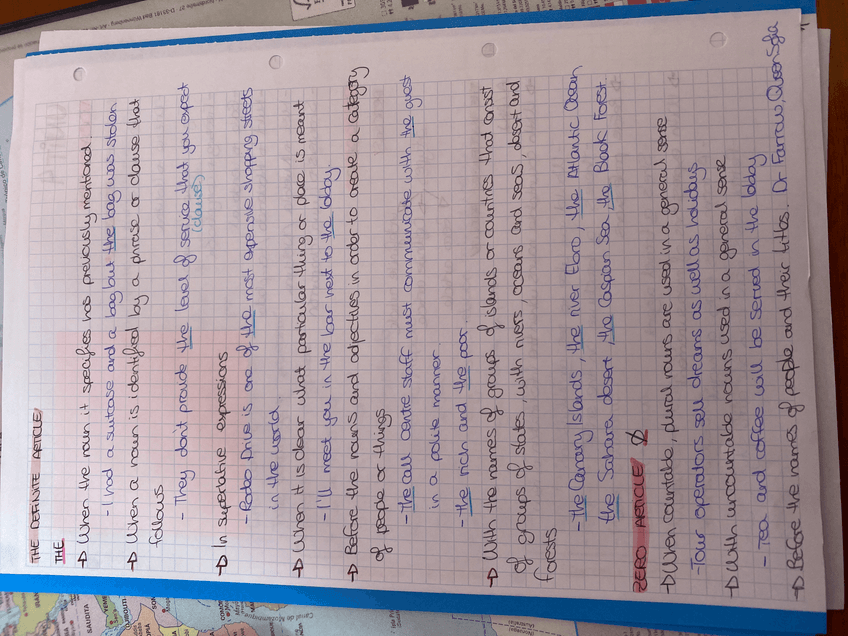 THE DEFINITE ARTICLE
THE
→ When the noun it specifies has previously mentioned.
- I had a suitcase and a bag but the bag was stolen
→ When a noun is identified by a phrase or clause that
follows
- They don't provide the level of service that you expect
(clause)
→ In superlative expressions
- Rodeo Drive is one of the most expensive shopping streets
in the world.
→ When it is clear what particular thing or place is meant
- I'll meet you in the bar next to the lobby.
→ Before the nouns and adjectives in order to create a category
of people or things
- The call centre staff must communicate with the guest
in a polite manner
- the rich and the poor.
→ With the names of groups of islands or countries that consist
of groups of states, with rivers, oceans and seas, desert and
forests
- the Canary Islands, the river Ebro, the Atlantic Ocean
the Sahara desert, the Caspian Sea, the Black Forest
ZERO ARTICLE Ø
→ When countable, plural nouns are used in a general sense
- Tour operators sell dreams as well as holidays
→ With uncountable nouns used in a general sense
- Tea and coffee will be served in the lobby
→ Before the names of people and their titles. Dr Farrow, Queen Sofia
SAUDITA
YEMEN
DJIBOUTI
Canal de Mozambique